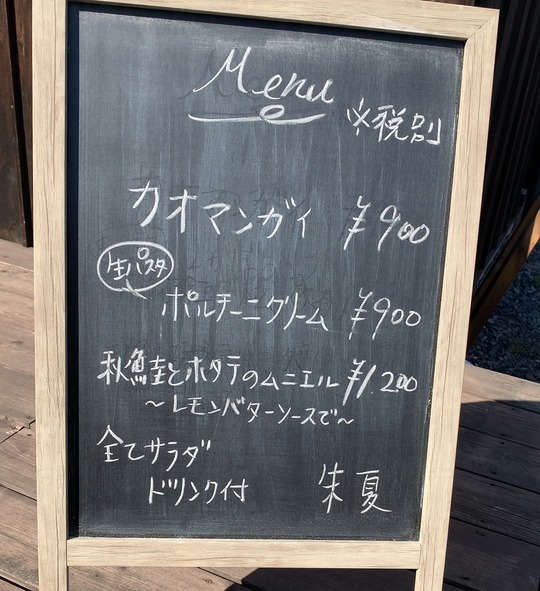 Menu
※税別
カオマンガイ ¥900
生パスタ
ポルチーニクリーム ¥900
秋鮭とホタテのムニエル ¥1.200
～レモンバターソースで～
全てサラダ
ドリンク付
朱夏